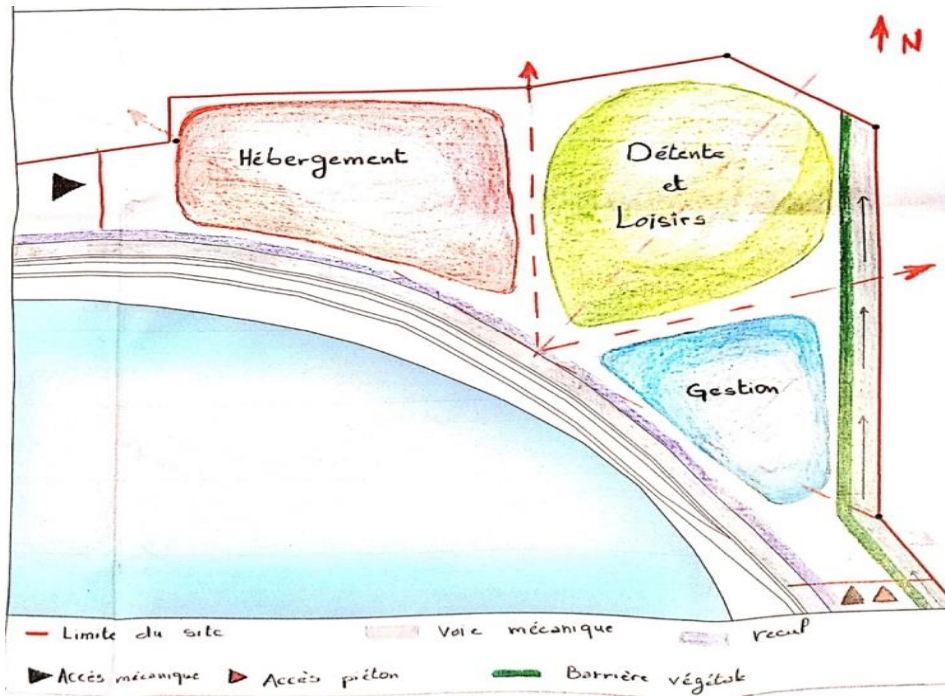 N
Hébergement
Détente
et
Loisirs
Gestion
Limite du site
Voie mécanique
recul
Accès mécanique
Accès piéton
Barrière végétale